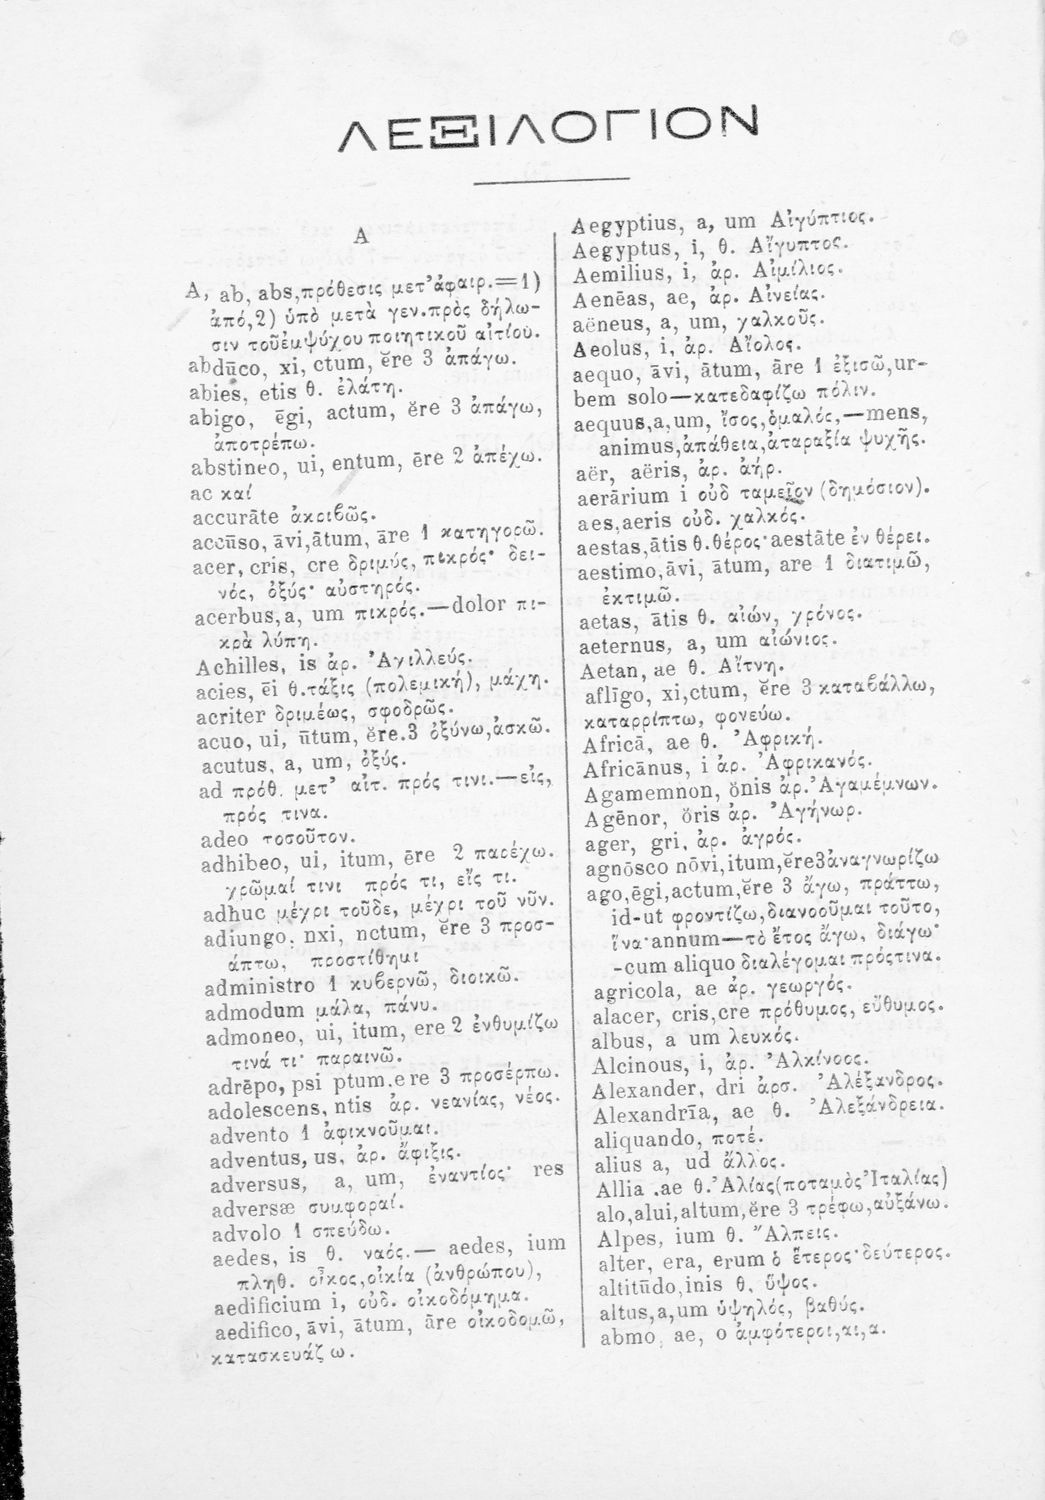 ΛΕΞΙΛΟΓΙΟΝ
A
A, ab, abs,πρόθεσις μετ’ἀφαιρ.=1)
ἀπό,2) ὑπὸ μετὰ γεν.πρὸς δήλω-
σιν τοῦἐμψύχου ποιητικοῦ αἰτίου.
abdūco, xi, ctum, ĕre 3 ἀπάγω.
abies, etis θ. ἐλάτη.
abigo, ēgi, actum, ĕre 3 ἀπάγω,
ἀποτρέπω.
abstineo, ui, entum, ēre 2 ἀπέχω.
ac καί
accurāte ἀκριβῶς.
accūso, āvi,ātum, āre 1 κατηγορῶ.
acer, cris, cre δριμύς, πικρός· δει-
νός, ὀξύς· αὐστηρός.
acerbus,a, um πικρός.—dolor πι-
κρὰ λύπη.
Achilles, is ἀρ. Ἀχιλλεύς.
acies, ēi θ.τάξις (πολεμική), μάχη.
acriter δριμέως, σφοδρῶς.
acuo, ui, ūtum, ĕre.3 ὀξύνω,ἀσκῶ.
acutus, a, um, ὀξύς.
ad πρόθ. μετ’ αἰτ. πρός τινι.—εἰς,
πρός τινα.
adeo τοσοῦτον.
adhibeo, ui, itum, ēre 2 παρέχω.
χρῶμαί τινι πρός τι, εἴς τι.
adhuc μέχρι τοῦδε, μέχρι τοῦ νῦν.
adiungo, nxi, nctum, ĕre 3 προσ-
άπτω, προστίθημι
administro 1 κυβερνῶ, διοικῶ.
admodum μάλα, πάνυ.
admoneo, ui, itum, ere 2 ἐνθυμίζω
τινά τι· παραινῶ.
adrēpo, psi ptum.ere 3 προσέρπω.
adolescens, ntis ἀρ. νεανίας, νέος.
advento 1 ἀφικνοῦμαι.
adventus, us, ἀρ. ἄφιξις.
adversus, a, um, ἐναντίος· res
adversæ συμφοραί.
advolo 1 σπεύδω.
aedes, is θ. ναός.— aedes, ium
πληθ. οἶκος,οἰκία (ἀνθρώπου),
aedificium i, οὐδ. οἰκοδόμημα.
aedifico, āvi, ātum, āre οἰκοδομῶ,
κατασκευάζ ω.
Aegyptius, a, um Αἰγύπτιος.
Aegyptus, i, θ. Αἴγυπτος.
Aemilius, i, ἀρ. Αἰμίλιος.
Aenēas, ae, ἀρ. Αἰνείας.
aëneus, a, um, χαλκοῦς.
Aeolus, i, ἀρ. Αἴολος.
aequo, āvi, ātum, āre 1 ἐξισῶ,ur-
bem solo—κατεδαφίζω πόλιν.
aequus,a,um, ἴσος,ὁμαλός,—mens,
animus,ἀπάθεια,ἀταραξία ψυχῆς.
aër, aëris, ἀρ. ἀήρ.
aerārium i οὐδ ταμεῖον (δημόσιον).
aes,aeris οὐδ. χαλκός.
aestas,ātis θ.θέρος·aestāte ἐν θέρει.
aestimo,āvi, ātum, are 1 διατιμῶ,
ἐκτιμῶ.
aetas, ātis θ. αἰών, χρόνος.
aeternus, a, um αἰώνιος.
Aetan, ae θ. Αἴτνη.
aflīgo, xi,ctum, ĕre 3 καταβάλλω,
καταρρίπτω, φονεύω.
Africā, ae θ. Ἀφρική.
Africānus, i ἀρ. Ἀφρικανός.
Agamemnon, ŏnis ἀρ.Ἀγαμέμνων.
Agēnor, ŏris ἀρ. Ἀγήνωρ.
ager, gri, ἀρ. ἀγρός.
agnōsco nōvi,itum,ĕre3ἀναγνωρίζω
ago,ēgi,actum,ĕre 3 ἄγω, πράττω,
id-ut φροντίζω,διανοοῦμαι τοῦτο,
ἵνα·annum—τὸ ἔτος ἄγω, διάγω·
-cum aliquo διαλέγομαι πρόςτινα.
agricola, ae ἀρ. γεωργός.
alacer, cris,cre πρόθυμος, εὔθυμος.
albus, a um λευκός.
Alcinous, i, ἀρ. Ἀλκίνοος.
Alexander, dri ἀρσ. Ἀλέξανδρος.
Alexandrīa, ae θ. Ἀλεξάνδρεια.
aliquando, ποτέ.
alius a, ud ἄλλος.
Allia .ae θ.Ἀλίας(ποταμὸςἸταλίας)
alo,alui,altum,ĕre 3 τρέφω,αὐξάνω.
Alpes, ium θ. Ἄλπεις.
alter, era, erum ὁ ἕτερος·δεύτερος.
altitūdo,inis θ, ὕψος.
altus,a,um ὑψηλός, βαθύς.
abmo, ae, o ἀμφότεροι,αι,α.